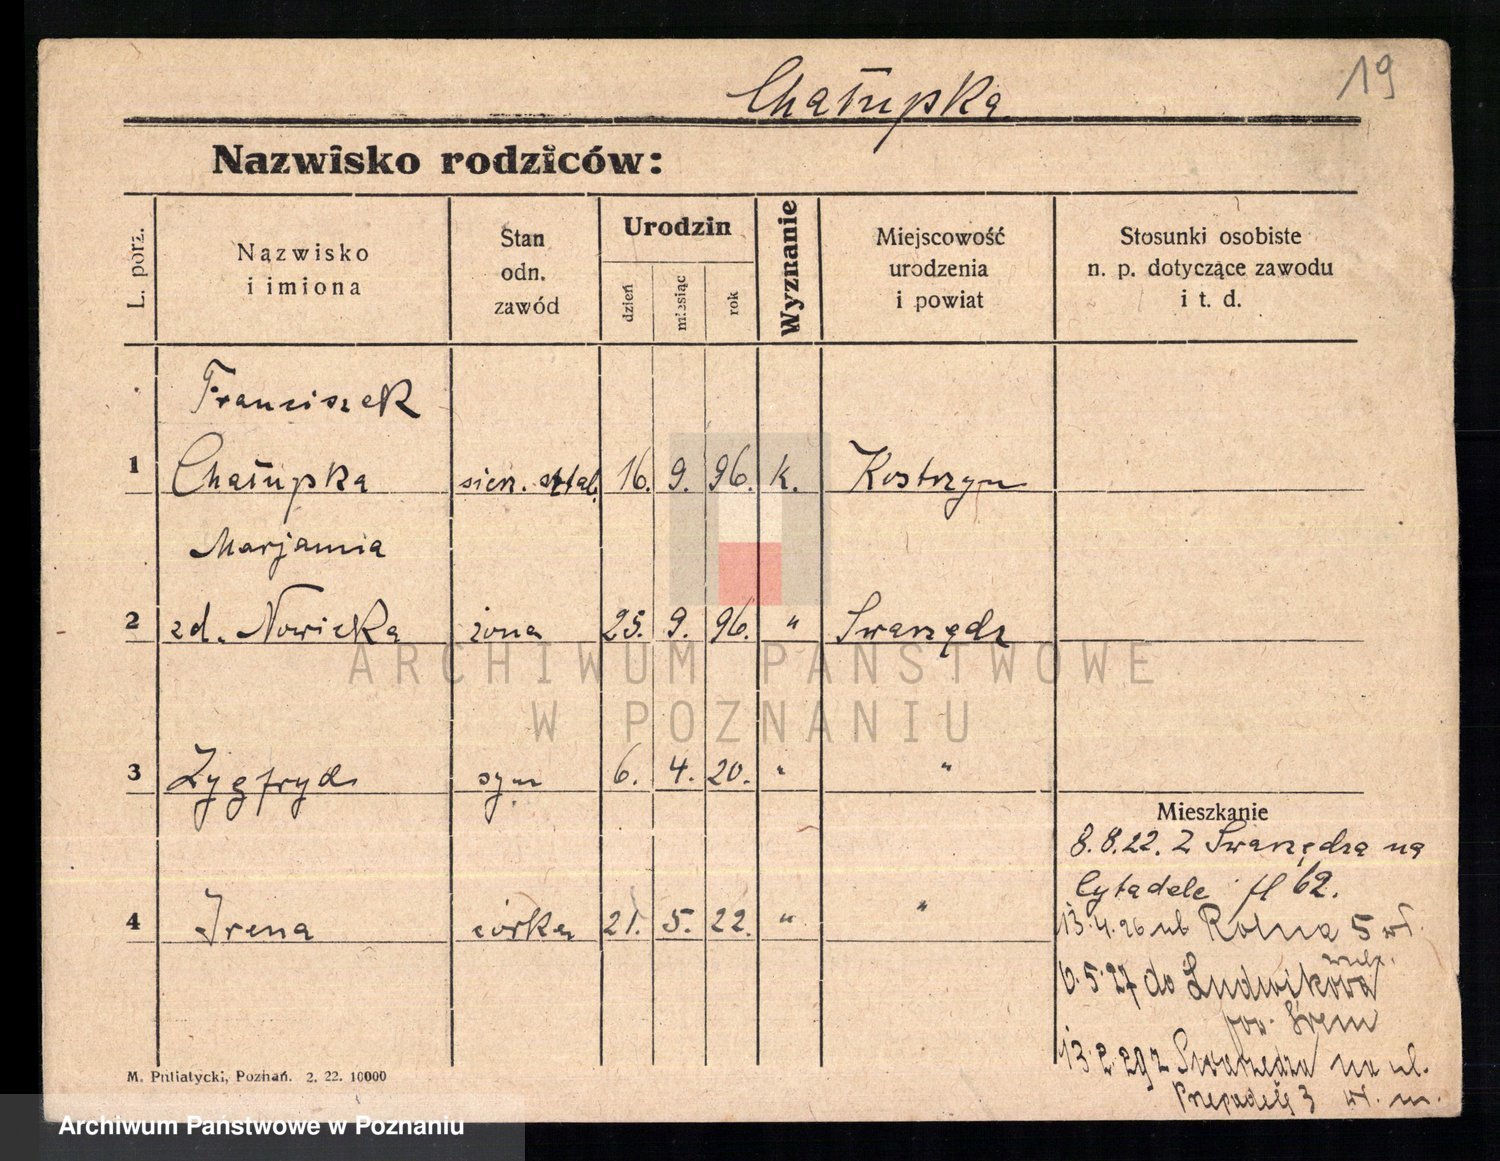 19
Chałupka
Nazwisko rodziców:
L. porz.
Nazwisko
i imiona
Stan
odn.
zawód
Urodzin
dzień
miesiąc
rok
Wyznanie
Miejscowość
urodzenia
i powiat
Stosunki osobiste
n. p. dotyczące zawodu
i t. d.
Franciszek
1 Chałupka sierż. sztab. 16. 9. 96. k. Kostrzyn
Marjanna
2 zd. Nowicka żona 25. 9. 96. " Swarzędz
3 Zygfryd syn 6. 4. 20. " "
4 Irena córka 21. 5. 22. " "
Mieszkanie
8.8.22. z Swarzędza na
Cytadele 62.
13.4.26 ul Rolna 5 wł.
6.5.27 do Ludwikowa
pow. Śrem
13.2.29 z Swarzędza na ul.
3 wł. m.
M. Putiatycki, Poznań. 2. 22. 10000
ARCHIWUM PAŃSTWOWE
W POZNANIU
Archiwum Państwowe w Poznaniu